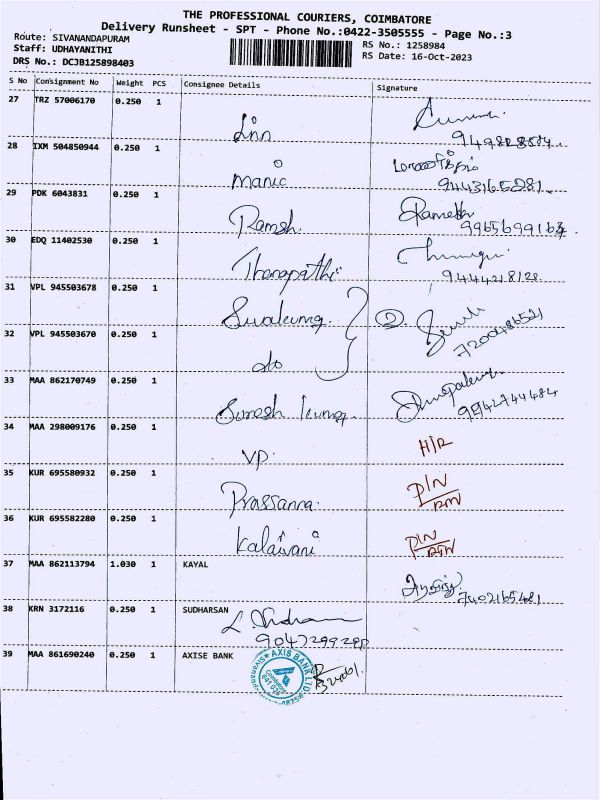 THE PROFESSIONAL COURIERS, COIMBATORE
Delivery Runsheet - SPT - Phone No.:0422-3505555 - Page No.:3
Route: SIVANANDAPURAM
RS No.: 1258984
Staff: UDHAYANITHI
RS Date: 16-Oct-2023
DRS No.: DCJB125898403
S No Consignment No Weight PCS Consignee Details Signature
27 TRZ 57006170 0.250 1
Linn
28 IXM 504850944 0.250 1
Manic 9443165281.
29 PDK 6043831 0.250 1
Ramsh
30 EDQ 11402530 0.250 1
Thanapathi
31 VPL 945503678 0.250 1
2
32 VPL 945503670 0.250 1
do
33 MAA 862170749 0.250 1
Suresh kumar
34 MAA 298009176 0.250 1
VP. H/R
35 KUR 695580932 0.250 1
Prassanna. D/N
36 KUR 695582280 0.250 1
Kalaivani D/N
37 MAA 862113794 1.030 1 KAYAL
7402165481
38 KRN 3172116 0.250 1 SUDHARSAN
39 MAA 861690240 0.250 1 AXISE BANK
AXIS BANK LTD